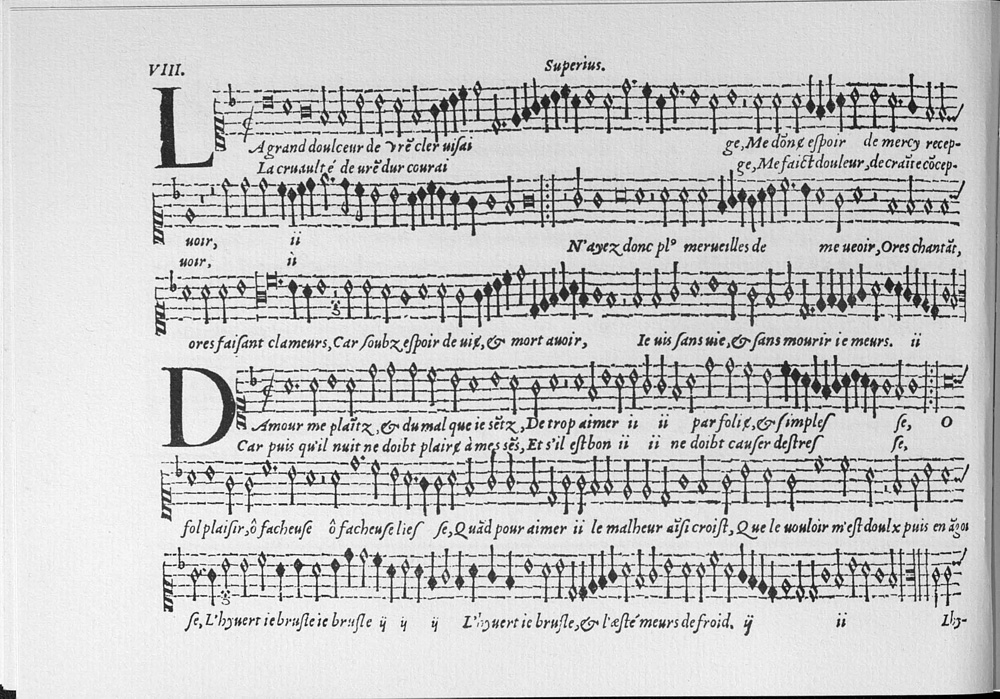 VIII.
Superius.
LA grand doulceur de vrẽ cler uisai ge, Me dõne espoir de mercy recep-
La cruaulté de urẽ dur courai ge, Me faict douleur, de craĩte cõcep-
uoir, ii N'ayez donc plꝰ merueilles de me ueoir, Ores chantãt,
uoir, ii
ores faisant clameurs, Car soubz espoir de uie, & mort auoir, Ie uis sans uie, & sans mourir ie meurs. ii
DAmour me plaĩtz, & du mal que ie sẽtz, De trop aimer ii ii par folie, & simples se, O
Car puis qu'il nuit ne doibt plaire à mes sẽs, Et s'il est bon ii ii ne doibt causer destres se,
fol plaisir, ô facheuse ô facheuse lies se, Quãd pour aimer ii le malheur aĩsi croist, Que le uouloir m'est doulx puis en ãgoi
se, L'hyuert ie brusle ie brusle ij ij ij L'hyuert ie brusle, & l'æsté meurs de froid. ij ii Lhy-